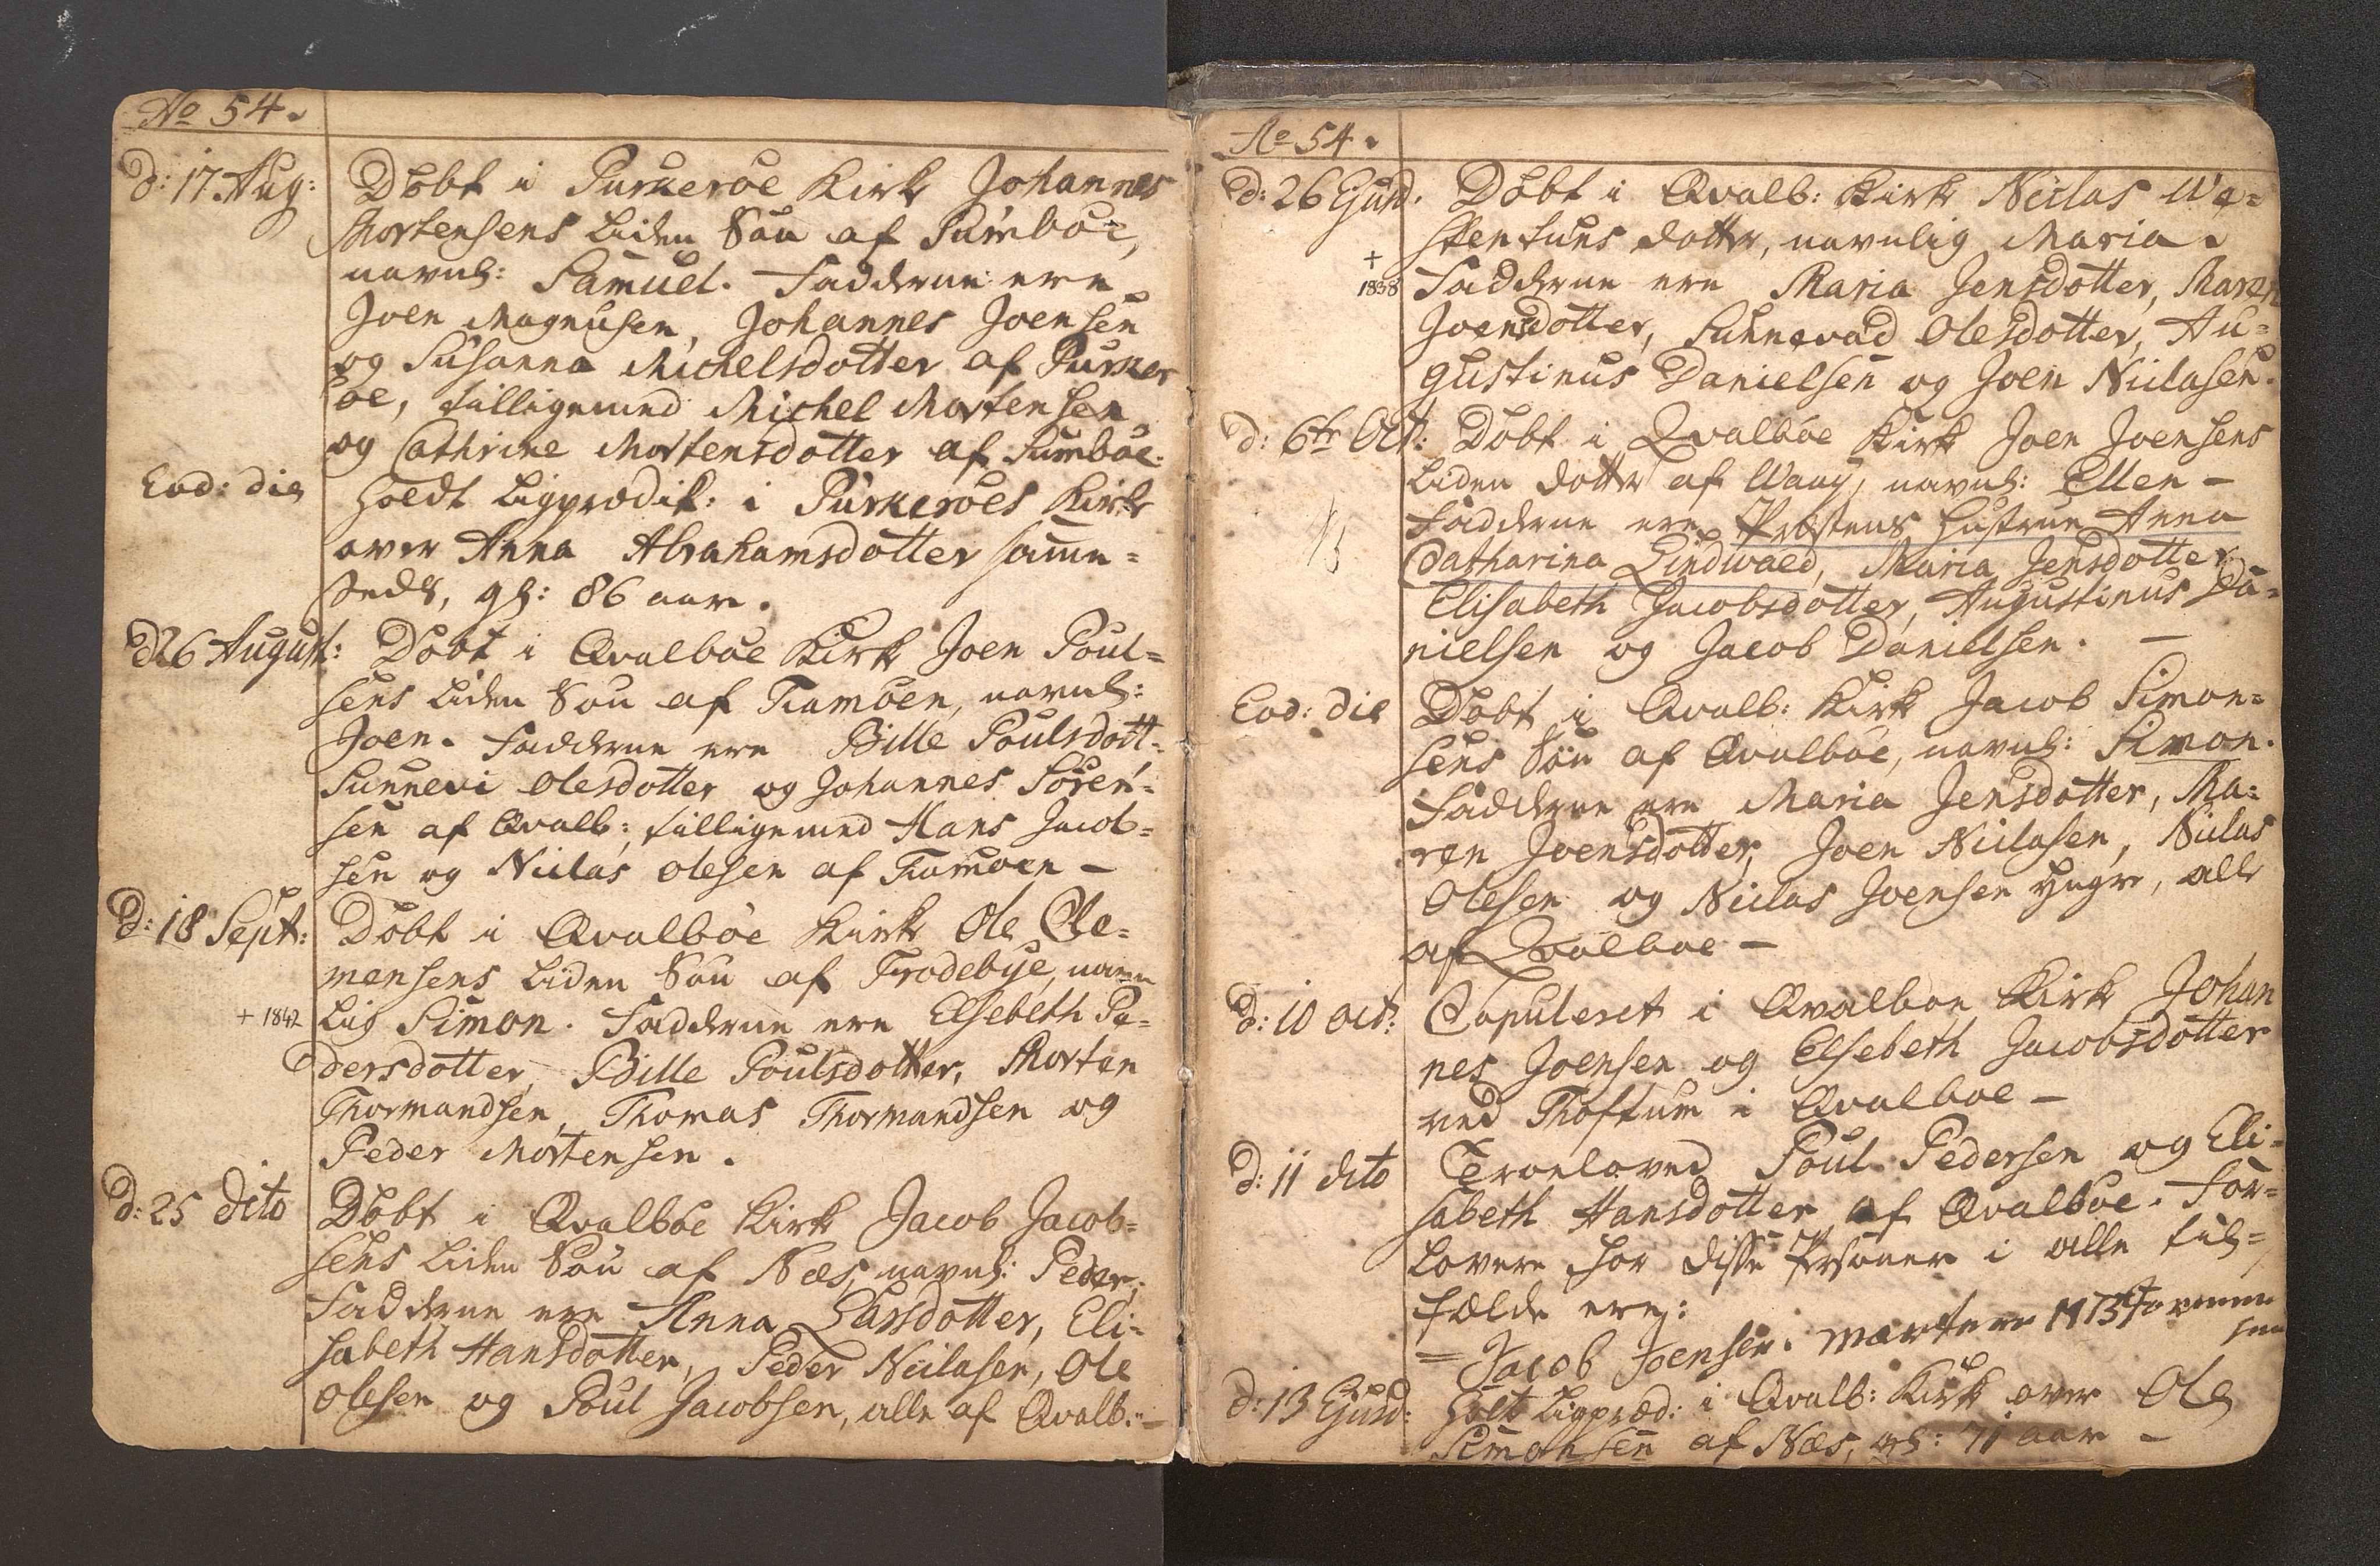 Ao 54.
d: 17 Aug: Döbt i Purkeröe Kirk Johannes
Mortensens Liden Sön af Sumböe,
navnl: Samuel. Fadderne ere
Joen Magnusen, Johannes Joensen
og Susanna Michelsdotter af Purker
öe, tilligemed Michel Mortensen
og Cathrine Mortensdotter af Sumböe.
Eod: die Holdt Ligprædik: i Purkeröes Kirke
over Anna Abrahamsdotter samme-
steds, gl: 86 aar.
d 26 August: Döbt i Qvalböe Kirk Joen Poul-
sens Liden Sön af Famöen, navnl:
Joen. Fadderne ere Bille Poulsdott,
Sunnevi Olesdotter og Johannes Sören-
sen af Qvalb: tilligemed Hans Jacob-
sen og Niclas Olesen af Famöen -
d: 18 Sept: Döbt i Qvalböe Kirk Ole Cle-
mensens Liden Sön af Frodebye, navn
+ 1842 lig Simon. Fadderne ere Elsebeth Pe-
dersdotter, Bille Poulsdotter, Morten
Thormandsen, Thomas Thormandsen og
Peder Mortensen.
d: 25 dito Döbt i Qvalböe Kirk Jacob Jacob-
sens Liden Sön af Næs, navnl: Peder,
Fadderne ere Anna Larsdotter, Eli-
sabeth Hansdotter, Peder Niclasen, Ole
Olesen og Poul Jacobsen, alle af Qvalb: -
Ao 54.
d: 26 Ejusd. Döbt i Qvalb: Kirk Niclas We-
stentuns dotter, navnlig Maria.
+
1838 Fadderne ere Maria Jensdotter, Maren
Joensdotter, Sunnevad Olesdotter, Au-
gustinus Danielsen og Joen Niclasen.
d: 6te Oct: Döbt i Qvalböe Kirk Joen Joensens
Liden dotter af Waag, navnl: Ellen -
Fadderne ere Præstens Hustrue Anna
Catharina Lindwaed, Maria Jensdotter
Elisabeth Jacobsdotter, Augustinus Da-
nielsen og Jacob Danielsen. -
Eod: die Döbt i Qvalb: Kirk Jacob Simon-
sens Sön af Qvalböe, navnl: Simon.
Fadderne ere Maria Jensdotter, Ma-
ren Joensdotter, Joen Niclasen, Niclas
Olesen og Niclas Joensen yngre, alle
af Qvalboe -
d: 10 Oct: Copuleret i Qvalboe Kirk Johan
nes Joensen og Elsebeth Jacobsdotter
ved Thoftum i Qvalboe -
d: 11 dito Troeloved Poul Pedersen og Eli-
sabeth Hansdotter af Qvalböe. For-
lovere for disse Persöner i alle til-
fælde ere:
= Jacob Joensen. Morten
d: 13 Ejusd: Holt Ligpræd: i Qvalb: Kirk over Ole
Simonsen af Næs, gl: 71 aar -